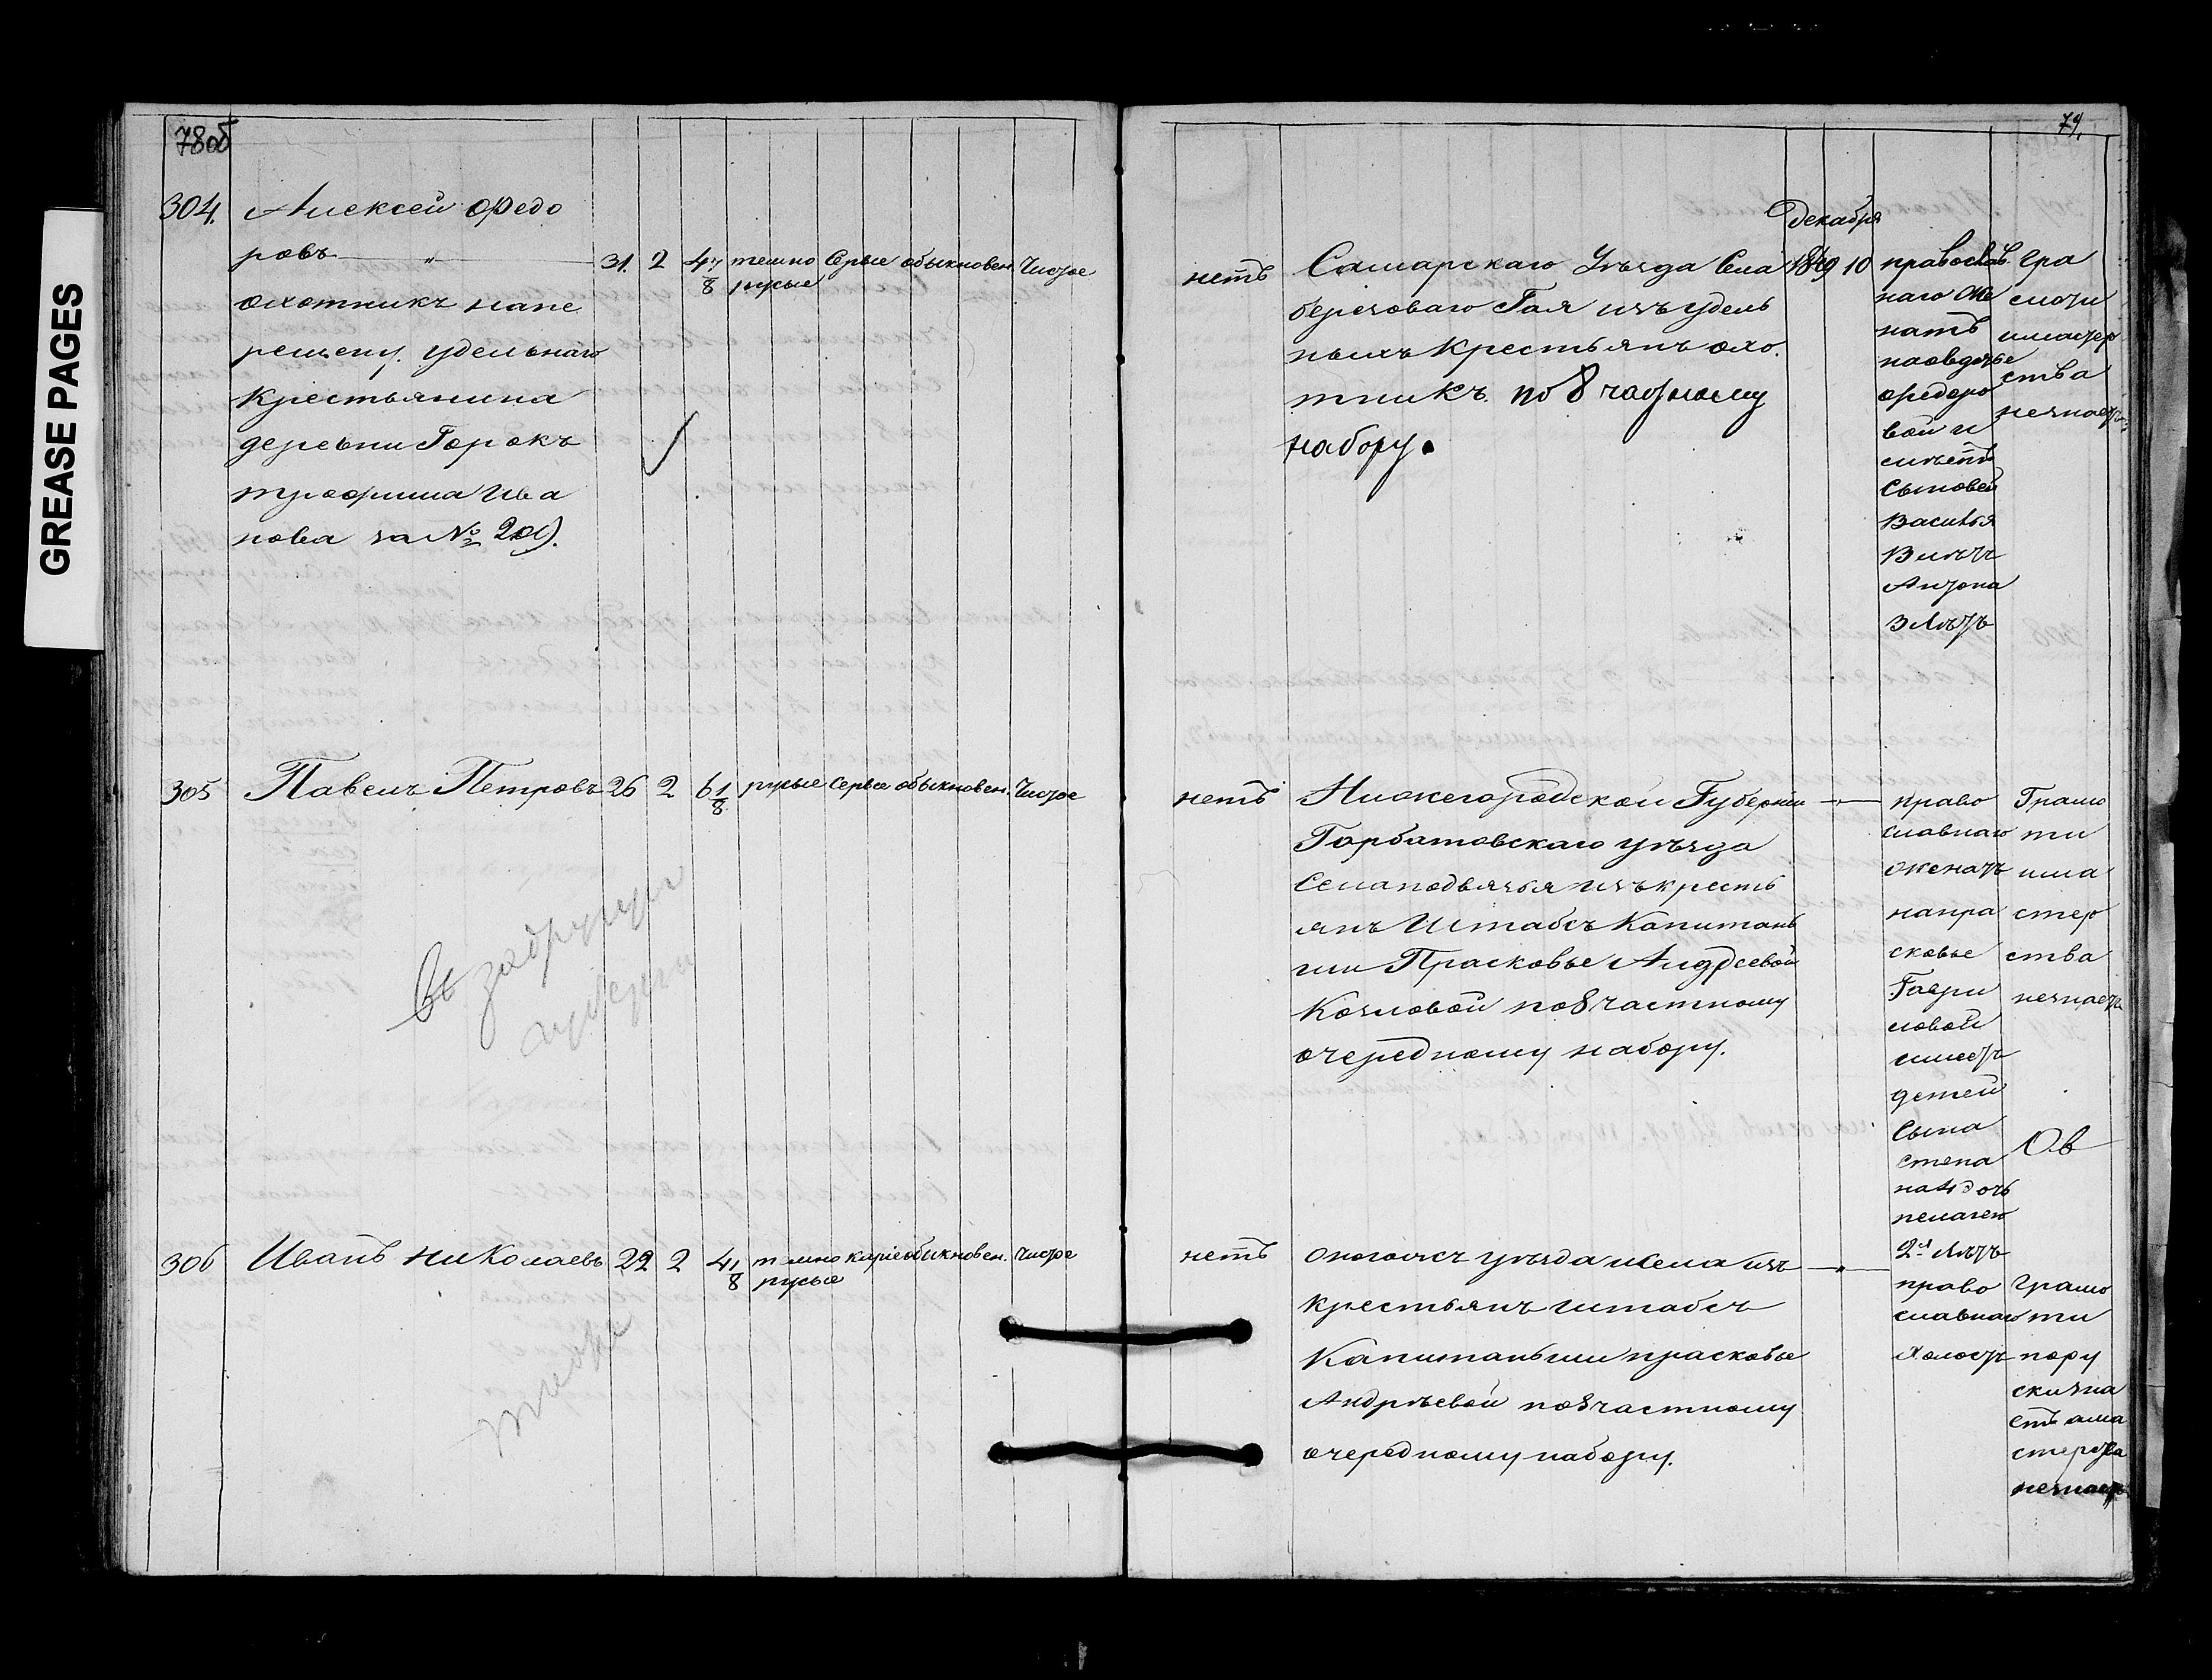 GREASE PAGES
78об
79.
304.
Алексей Федо
ровъ — " —
охотникъ нане
решену. удельнаго
крестьянина
деревни Горокъ
трофима Ива
нова за № 209.
31. 2 4 7/8 темно русые Серые обыкновен. Чистое
нетъ
Самарскаго Уѣзда Села
березоваго Гая изъ удель
ныхъ крестьянъ охо.
тникъ. по 8 частному
набору.
Декабря
1849 10
православ.
наго Же
натъ
наовдотье
федоро
вой и
имѣетъ
Сыновей
Василья
8 лѣтъ
Антона
3 лѣтъ
гра
моти
имастер
ства
незнаетъ
305
Павелъ Петровъ 26 2 6 1/8 русые серые обыкновен. Чистое
нетъ
Нижегородской Губернии
Горбатовскаго уѣзда
Селаподвязья изъкресть
янъ Штабсъ Капитань
ши Прасковье Андреевой
Козловой по8частному
очередному набору.
— " —
право
славнаго
женатъ
напра
сковье
Гаври
ловой
имеетъ
детей
Сына
степа
на 4 дочь
пелагею
2-хъ лѣтъ
Грамо
ти
има
стер
ства
незнаетъ
306
Иванъ николаевъ 22 2 4 1/8 темно русые каріе обикновен. чистое
нетъ
оногожъ уѣзда исела изъ
крестьянъ штабсъ
Капитаньши прасковье
Андрѣевой по8частному
очередному набору.
— " —
право
славнаго
холостъ
грамо
ти
пору
скизна
етъ ама
стерства
незнаетъ